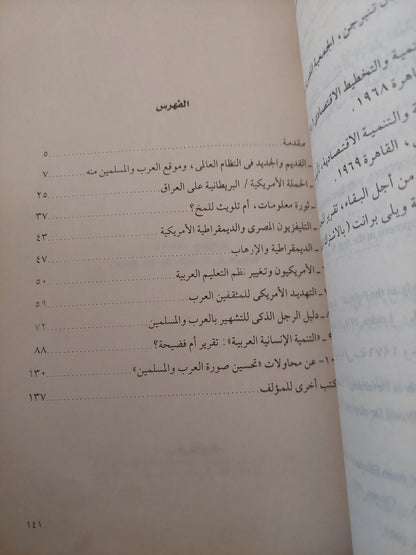 الفهرس
مقدمة ٥
القديم والجديد فى النظام العالمى، وموقع العرب والمسلمين منه ٧
الحملة الأمريكية / البريطانية على العراق ٢٥
ثورة معلومات، أم تلويث للمخ؟ ٣٧
التليفزيون المصرى والديمقراطية الأمريكية ٤٣
الديمقراطية والإرهاب ٤٧
الأمريكيون وتغيير نظم التعليم العربية ٥٠
التهديد الأمريكى للمثقفين العرب ٥٩
٨ـ دليل الرجل الذكى للتشهير بالعرب والمسلمين ٧٢
٩ـ «التنمية الإنسانية العربية»: تقرير أم فضيحة؟ ٨٨
١٠ـ عن محاولات «تحسين صورة العرب والمسلمين» ١٣٠
كتب أخرى للمؤلف ١٣٧
١٤١
تنيرجن، الجمعية
مية والتخطيط الاقتصادى
القاهرة ١٩٦٨.
والتنمية الاقتصادية،
القاهرة ١٩٦٩
من أجل البقاء، تقرير
ويلى برانت (بالاشتراك